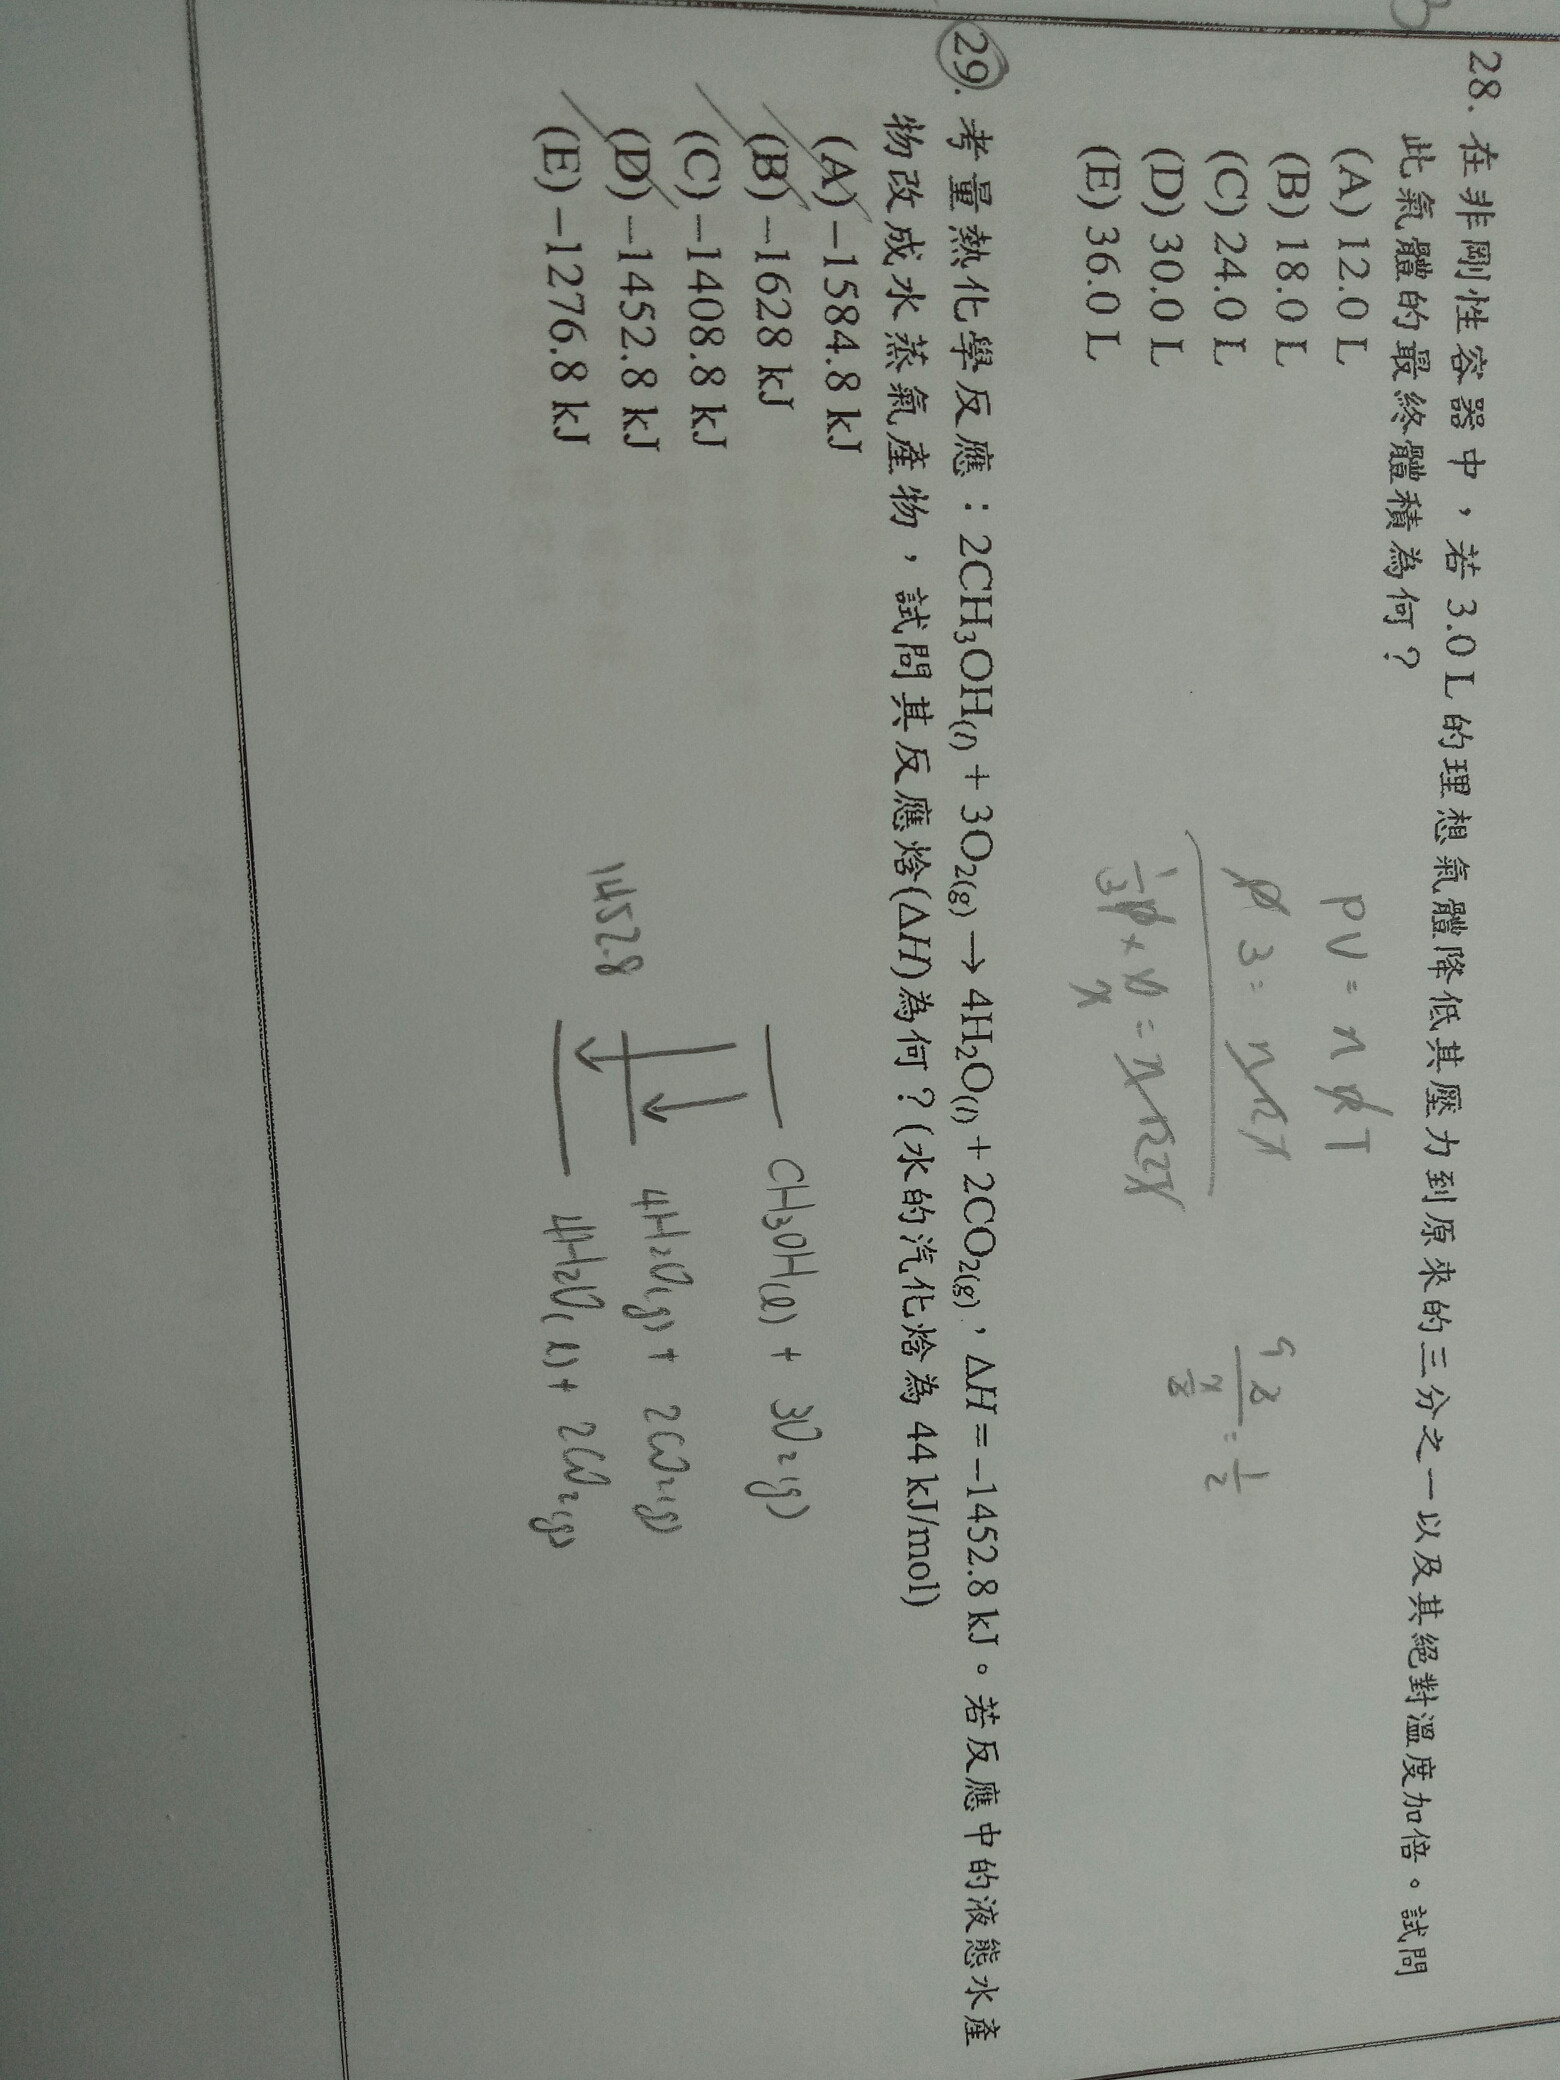 28. 在非剛性容器中，若 3.0 L 的理想氣體降低其壓力到原來的三分之一以及其絕對溫度加倍。試問
此氣體的最終體積為何？
(A) 12.0 L
(B) 18.0 L
(C) 24.0 L
(D) 30.0 L
(E) 36.0 L
PV = n R T
29. 考量熱化學反應：2CH₃OH(l) + 3O₂(g) → 4H₂O(l) + 2CO₂(g)，ΔH = −1452.8 kJ。若反應中的液態水產
物改成水蒸氣產物，試問其反應焓(ΔH)為何？(水的汽化焓為 44 kJ/mol)
(A) −1584.8 kJ
(B) −1628 kJ
(C) −1408.8 kJ
(D) −1452.8 kJ
(E) −1276.8 kJ
CH₃OH(l) + 3O₂(g)
4H₂O(g) + 2CO₂(g)
1452.8
4H₂O(l) + 2CO₂(g)